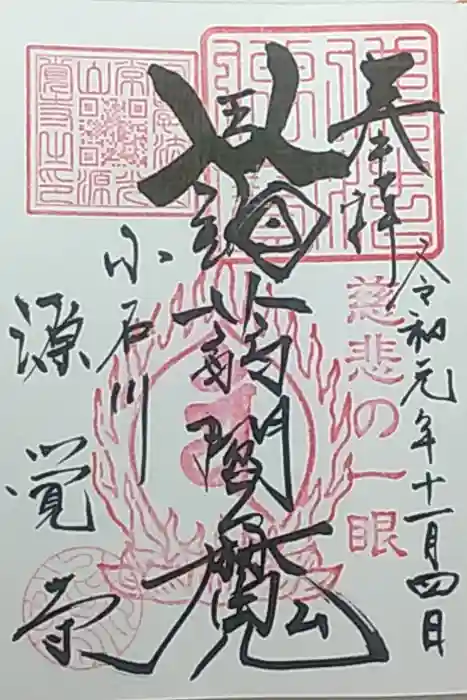 奉拝
令和元年十一月四日
慈悲の一眼
蒟蒻閻魔
小石川
源覚寺